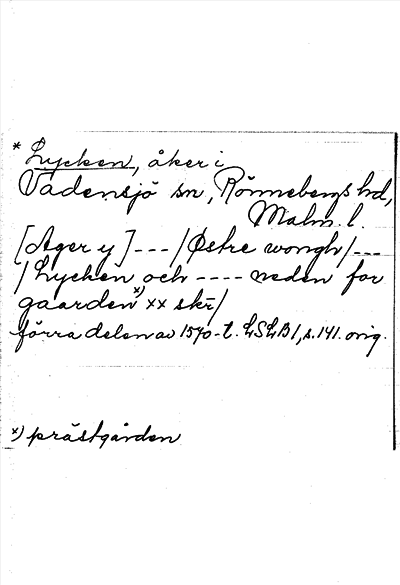 * Lycken, åker i
Vadensjö sn, Rönnebergs hd,
Malm. l.
[Ager y] --- /Østre wongh/ ---
/Lycken och ---- neden for
gaarden x) xx skr/
förra delen av 1570-t. LSLB1, s. 141. orig.
x) prästgården